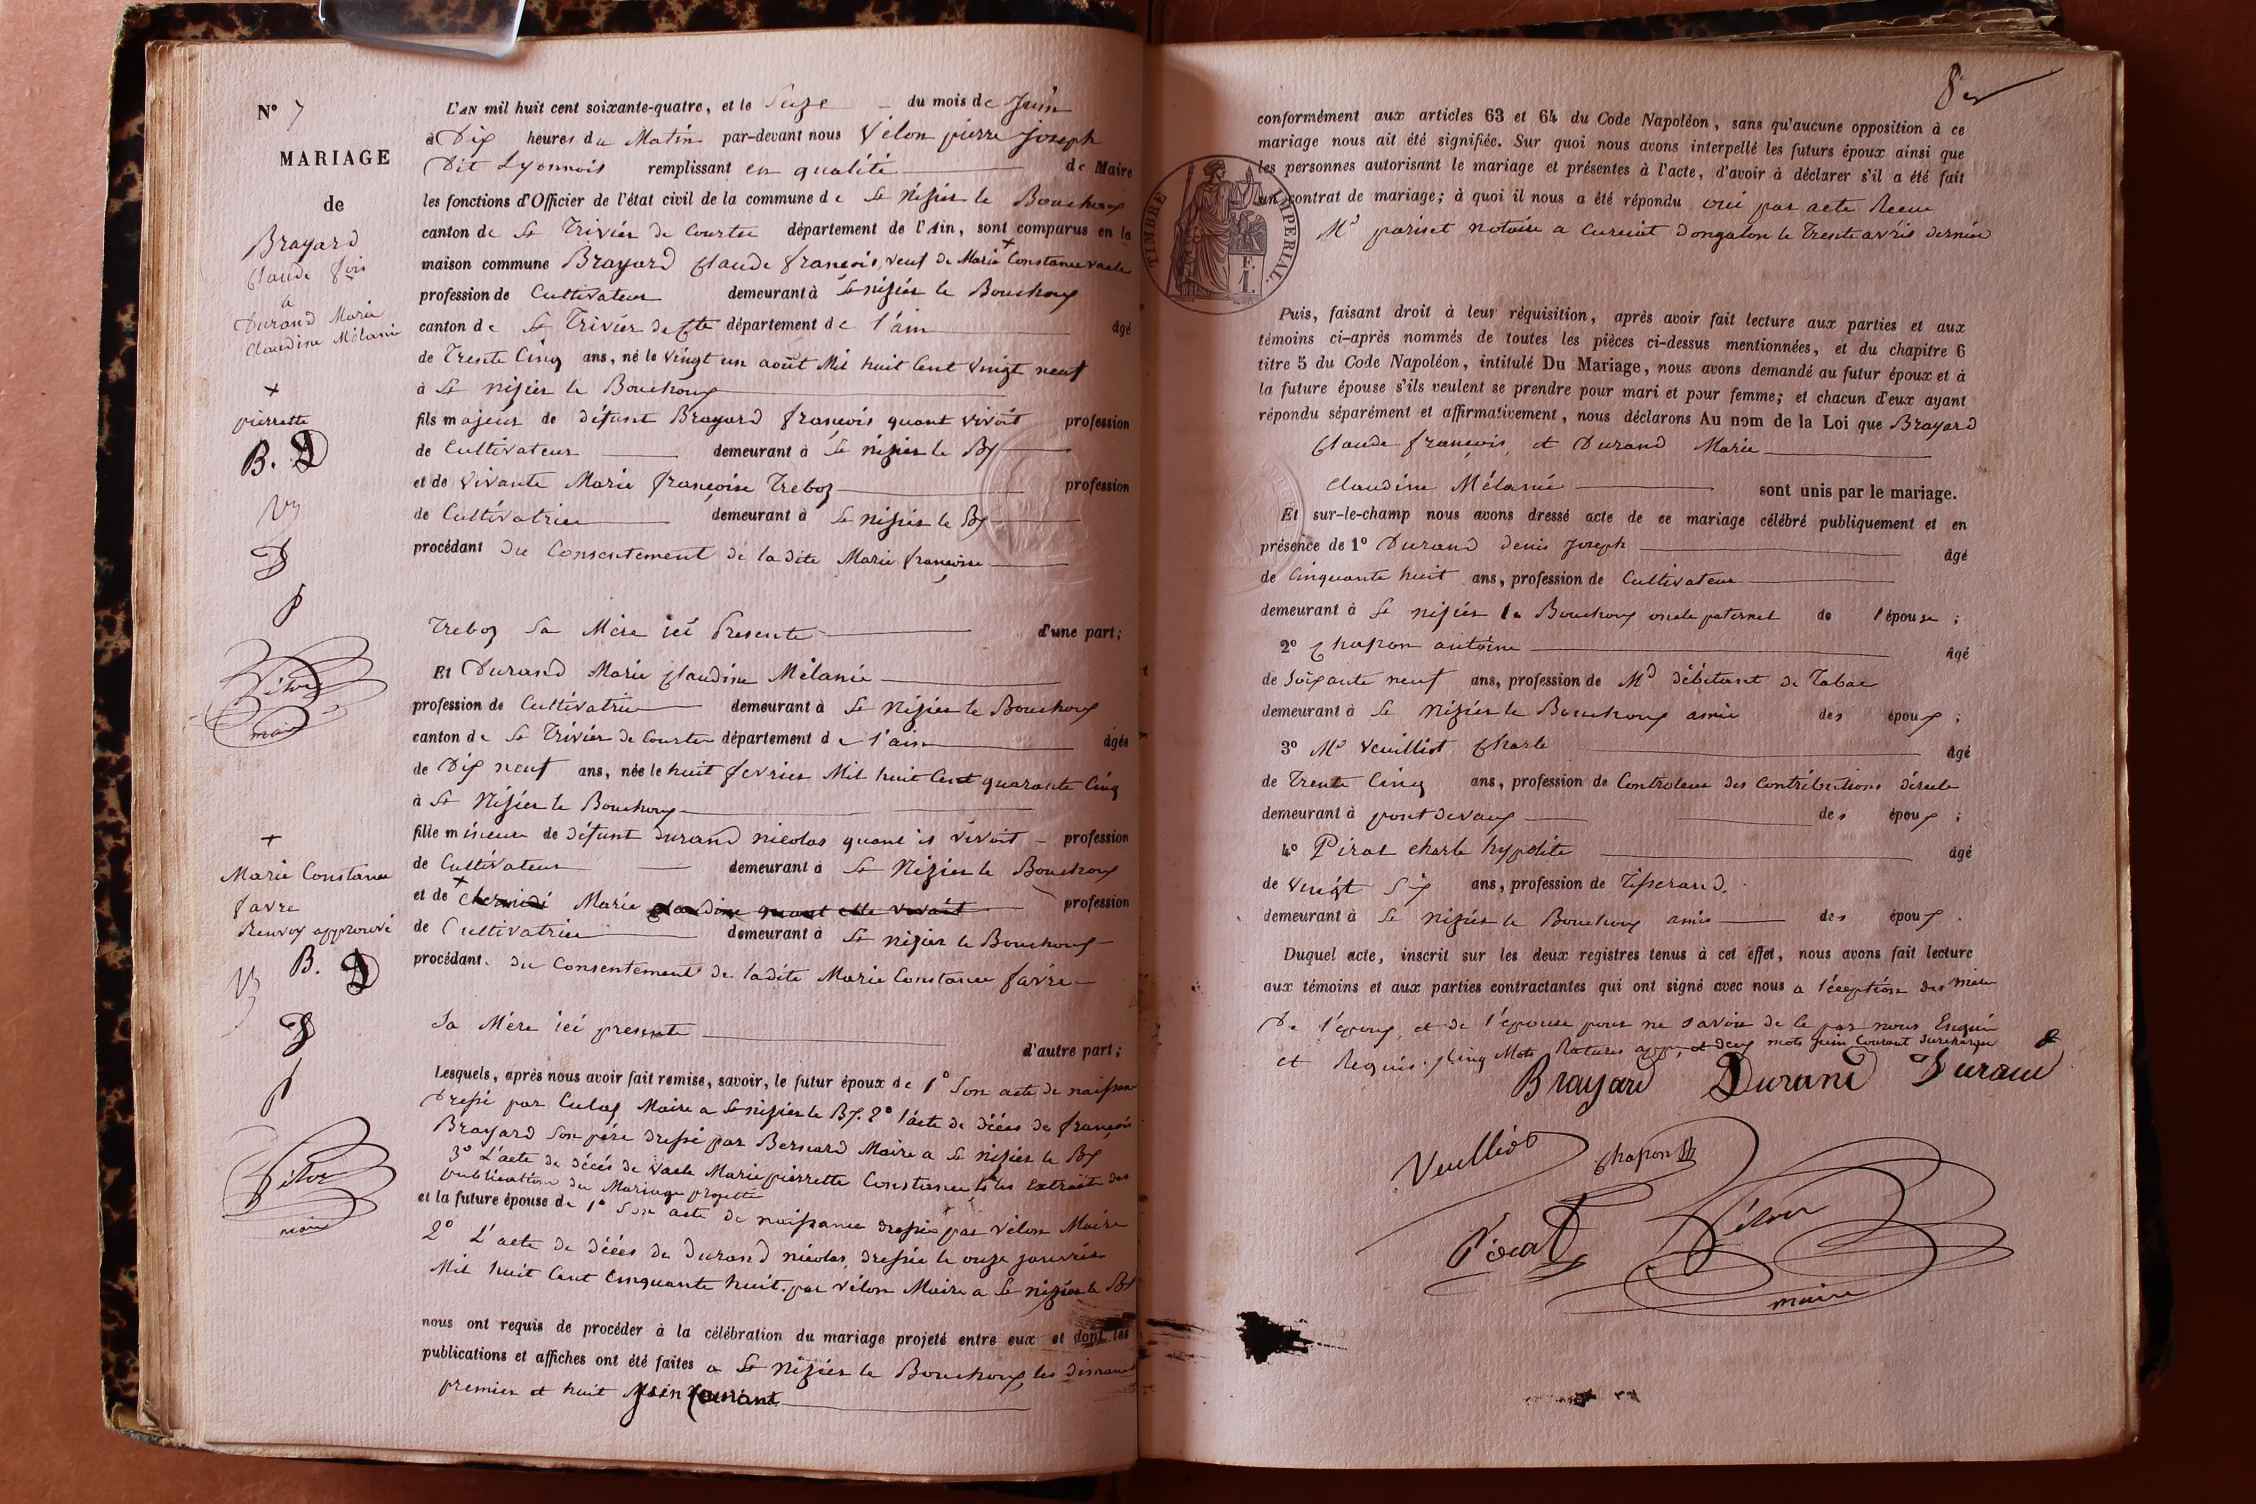 N° 7
MARIAGE
de
Brayard
Claude fois
a
Durand Marie
Claudine Mélanie
+
pierrette
B. D
Vélon
maire
+
Marie Constance
favre
Renvoy approuvé
B. D
Vélon
maire
L'AN mil huit cent soixante-quatre, et le Seize du mois de Juin
à Dix heures du Matin par-devant nous Vélon pierre joseph
Dit Lyonnois remplissant en qualité de Maire
les fonctions d'Officier de l'état civil de la commune de St Nizier le Bouchoux
canton de St Trivier de Courtes département de l'Ain, sont comparus en la
maison commune Brayard Claude françois, veuf de Marie + Constance Vacle
profession de Cultivateur demeurant à St nizier le Bouchoux
canton de St Trivier de Cte département de l'ain âgé
de Trente Cinq ans, né le vingt un août Mil huit Cent vingt neuf
à St nizier le Bouchoux
fils majeur de défunt Brayard françois quant vivoit profession
de Cultivateur demeurant à St nizier le Bx
et de vivante Marie françoise Treboz profession
de Cultivatrice demeurant à St nizier le Bx
procédant du Consentement de la dite Marie françoise
Treboz Sa Mère ici Presente d'une part;
Et Durand Marie Claudine Mélanie
profession de Cultivatrice demeurant à St Nizier le Bouchoux
canton de St Trivier de Courtes département de l'ain âgée
de Dix neuf ans, née le huit fevrier Mil huit Cent quarante Cinq
à St Nizier le Bouchoux
fille mineure de défunt Durand nicolas quant il vivoit profession
de Cultivateur demeurant à St Nizier le Bouchoux
et de + Marie Claudine quant elle vivait profession
de Cultivatrice demeurant à St nizier le Bouchoux
procédant du Consentement de ladite Marie Constance favre
Sa Mère ici presente
d'autre part;
Lesquels, après nous avoir fait remise, savoir, le futur époux de 1° Son acte de naissance
Dressé par Maire a St nizier le Bx. 2° l'acte de décès de françois
Brayard Son père dressé par Bernard Maire a St nizier le Bx
3° L'acte de décés de Vacle Marie pierrette Constance les Extraits des
publication du Mariage projetté
et la future épouse de 1° Son acte de naissance dressé par Vélon Maire
2° L'acte de décés de Durand nicolas, dressé le onze janvier
Mil huit Cent Cinquante huit par Vélon Maire a St nizier le Bx
nous ont requis de procéder à la célébration du mariage projeté entre eux et dont les
publications et affiches ont été faites a St Nizier le Bouchoux les dimanche
premier et huit Juin Courant
conformément aux articles 63 et 64 du Code Napoléon, sans qu'aucune opposition à ce
mariage nous ait été signifiée. Sur quoi nous avons interpellé les futurs époux ainsi que
les personnes autorisant le mariage et présentes à l'acte, d'avoir à déclarer s'il a été fait
un contrat de mariage; à quoi il nous a été répondu oui par acte Recu
Me pariset notaire a Cuisiat Dongalon le Trente avril dernier
TIMBRE IMPERIAL.
F.
1.
Puis, faisant droit à leur réquisition, après avoir fait lecture aux parties et aux
témoins ci-après nommés de toutes les pièces ci-dessus mentionnées, et du chapitre 6
titre 5 du Code Napoléon, intitulé Du Mariage, nous avons demandé au futur époux et à
la future épouse s'ils veulent se prendre pour mari et pour femme; et chacun d'eux ayant
répondu séparément et affirmativement, nous déclarons Au nom de la Loi que Brayard
Claude françois, et Durand Marie
Claudine Mélanie sont unis par le mariage.
Et sur-le-champ nous avons dressé acte de ce mariage célébré publiquement et en
présence de 1° Durand denis joseph âgé
de Cinquante huit ans, profession de Cultivateur
demeurant à St nizier le Bouchoux oncle paternel de l'épouse ;
2° Chapon antoine âgé
de Soixante neuf ans, profession de Md débitant de Tabac
demeurant à St Nizier le Bouchoux amie des époux ;
3° Mr Veuilliot Charle âgé
de Trente Cinq ans, profession de Controleur des Contributions directe
demeurant à pont devaux des époux ;
4° Pirat charle hypolite âgé
de vingt Six ans, profession de Tisserand.
demeurant à St nizier le Bouchoux amis des époux.
Duquel acte, inscrit sur les deux registres tenus à cet effet, nous avons fait lecture
aux témoins et aux parties contractantes qui ont signé avec nous a l'éxeption des Mère
De l'époux, et de l'épouse pour ne savoir de ce par nous Enquis
et Requis. Cinq Mots Raturés et deux mots juin Courant Surchargu
Brayard Durand Durand
Veuilliot Chapon
Pirat Vélon
maire